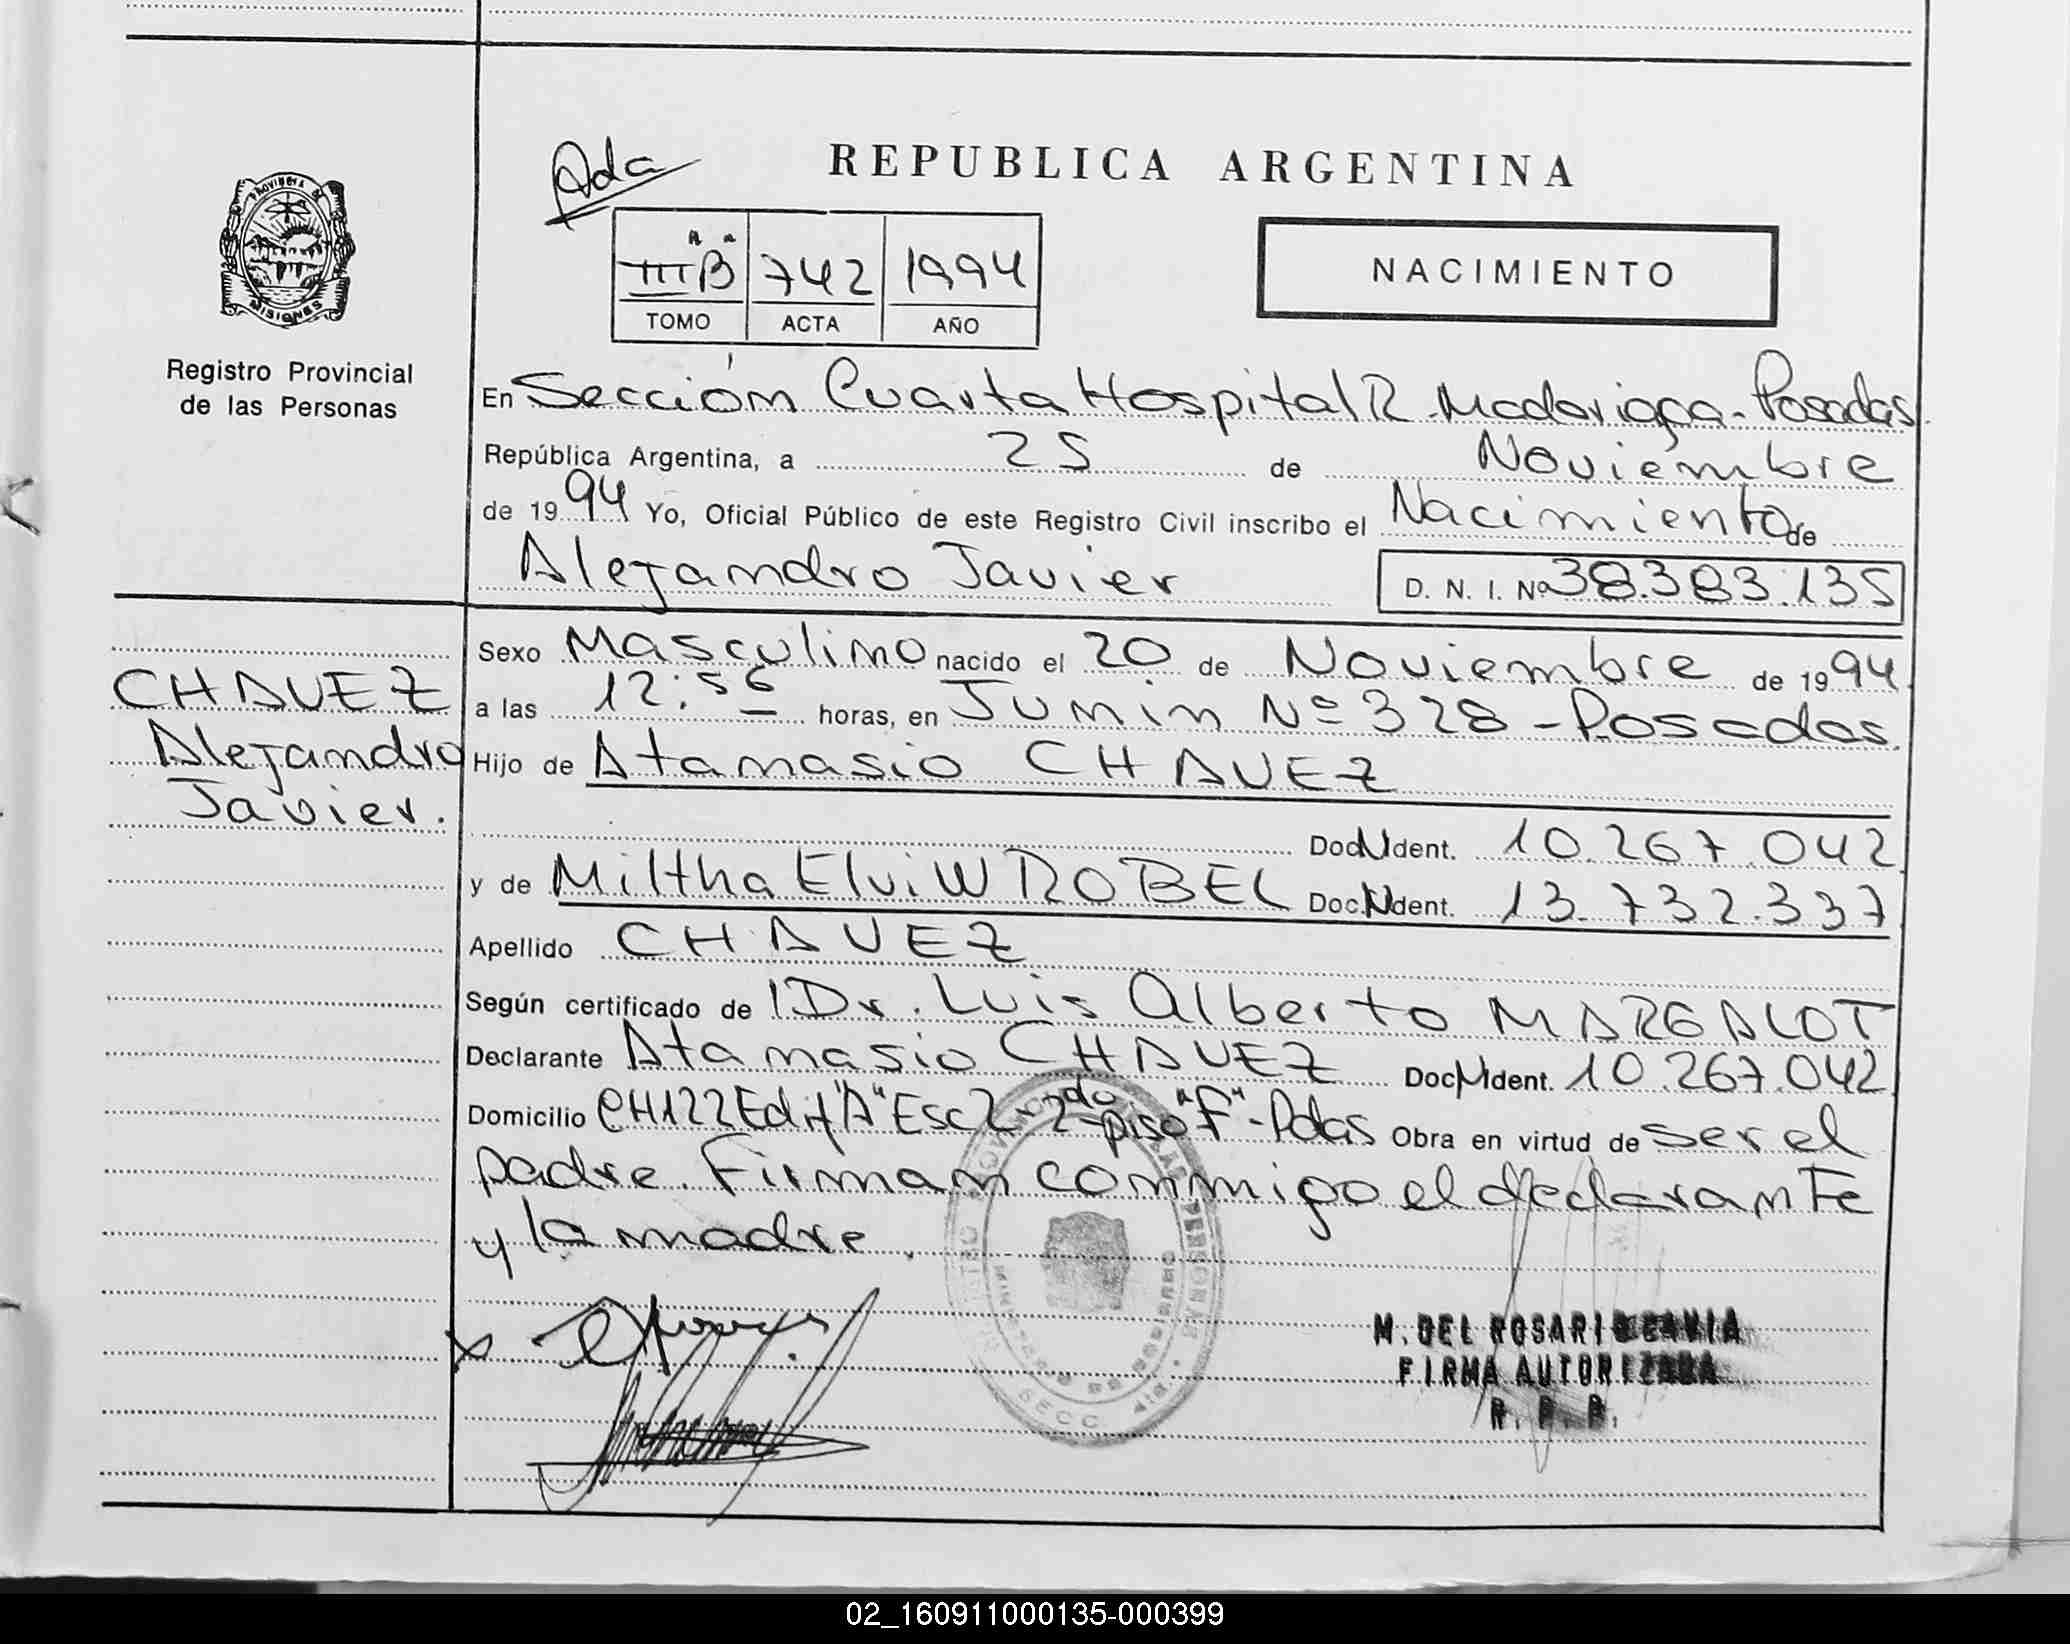 Ada
REPUBLICA ARGENTINA
III "B" 742 1994
TOMO ACTA AÑO
NACIMIENTO
PROVINCIA DE
MISIONES
Registro Provincial
de las Personas
En Sección Cuarta Hospital R. Madariaga - Posadas
República Argentina, a 25 de Noviembre
de 1994 Yo, Oficial Público de este Registro Civil inscribo el Nacimiento de
Alejandro Javier D. N. I. Nº 38.383.135
CHAVEZ
Alejandro
Javier.
Sexo Masculino nacido el 20 de Noviembre de 1994
a las 12:56 horas, en Junin Nº 328 - Posadas.
Hijo de Atanasio CHAVEZ
Doc. Ident. 10.267.042
y de Miltha Elvi WROBEL Doc. Ident. 13.732.337
Apellido CHAVEZ
Según certificado de Dr. Luis Alberto MARGALOT
Declarante Atanasio CHAVEZ Doc. Ident. 10.267.042
Domicilio CH122 Edif "A" Esc 2 - 2do piso "F" - Pdas Obra en virtud de ser el
padre. Firman conmigo el declarante
y la madre.
M. DEL ROSARIO
FIRMA AUTORIZADA
R. P. P.
02_160911000135-000399